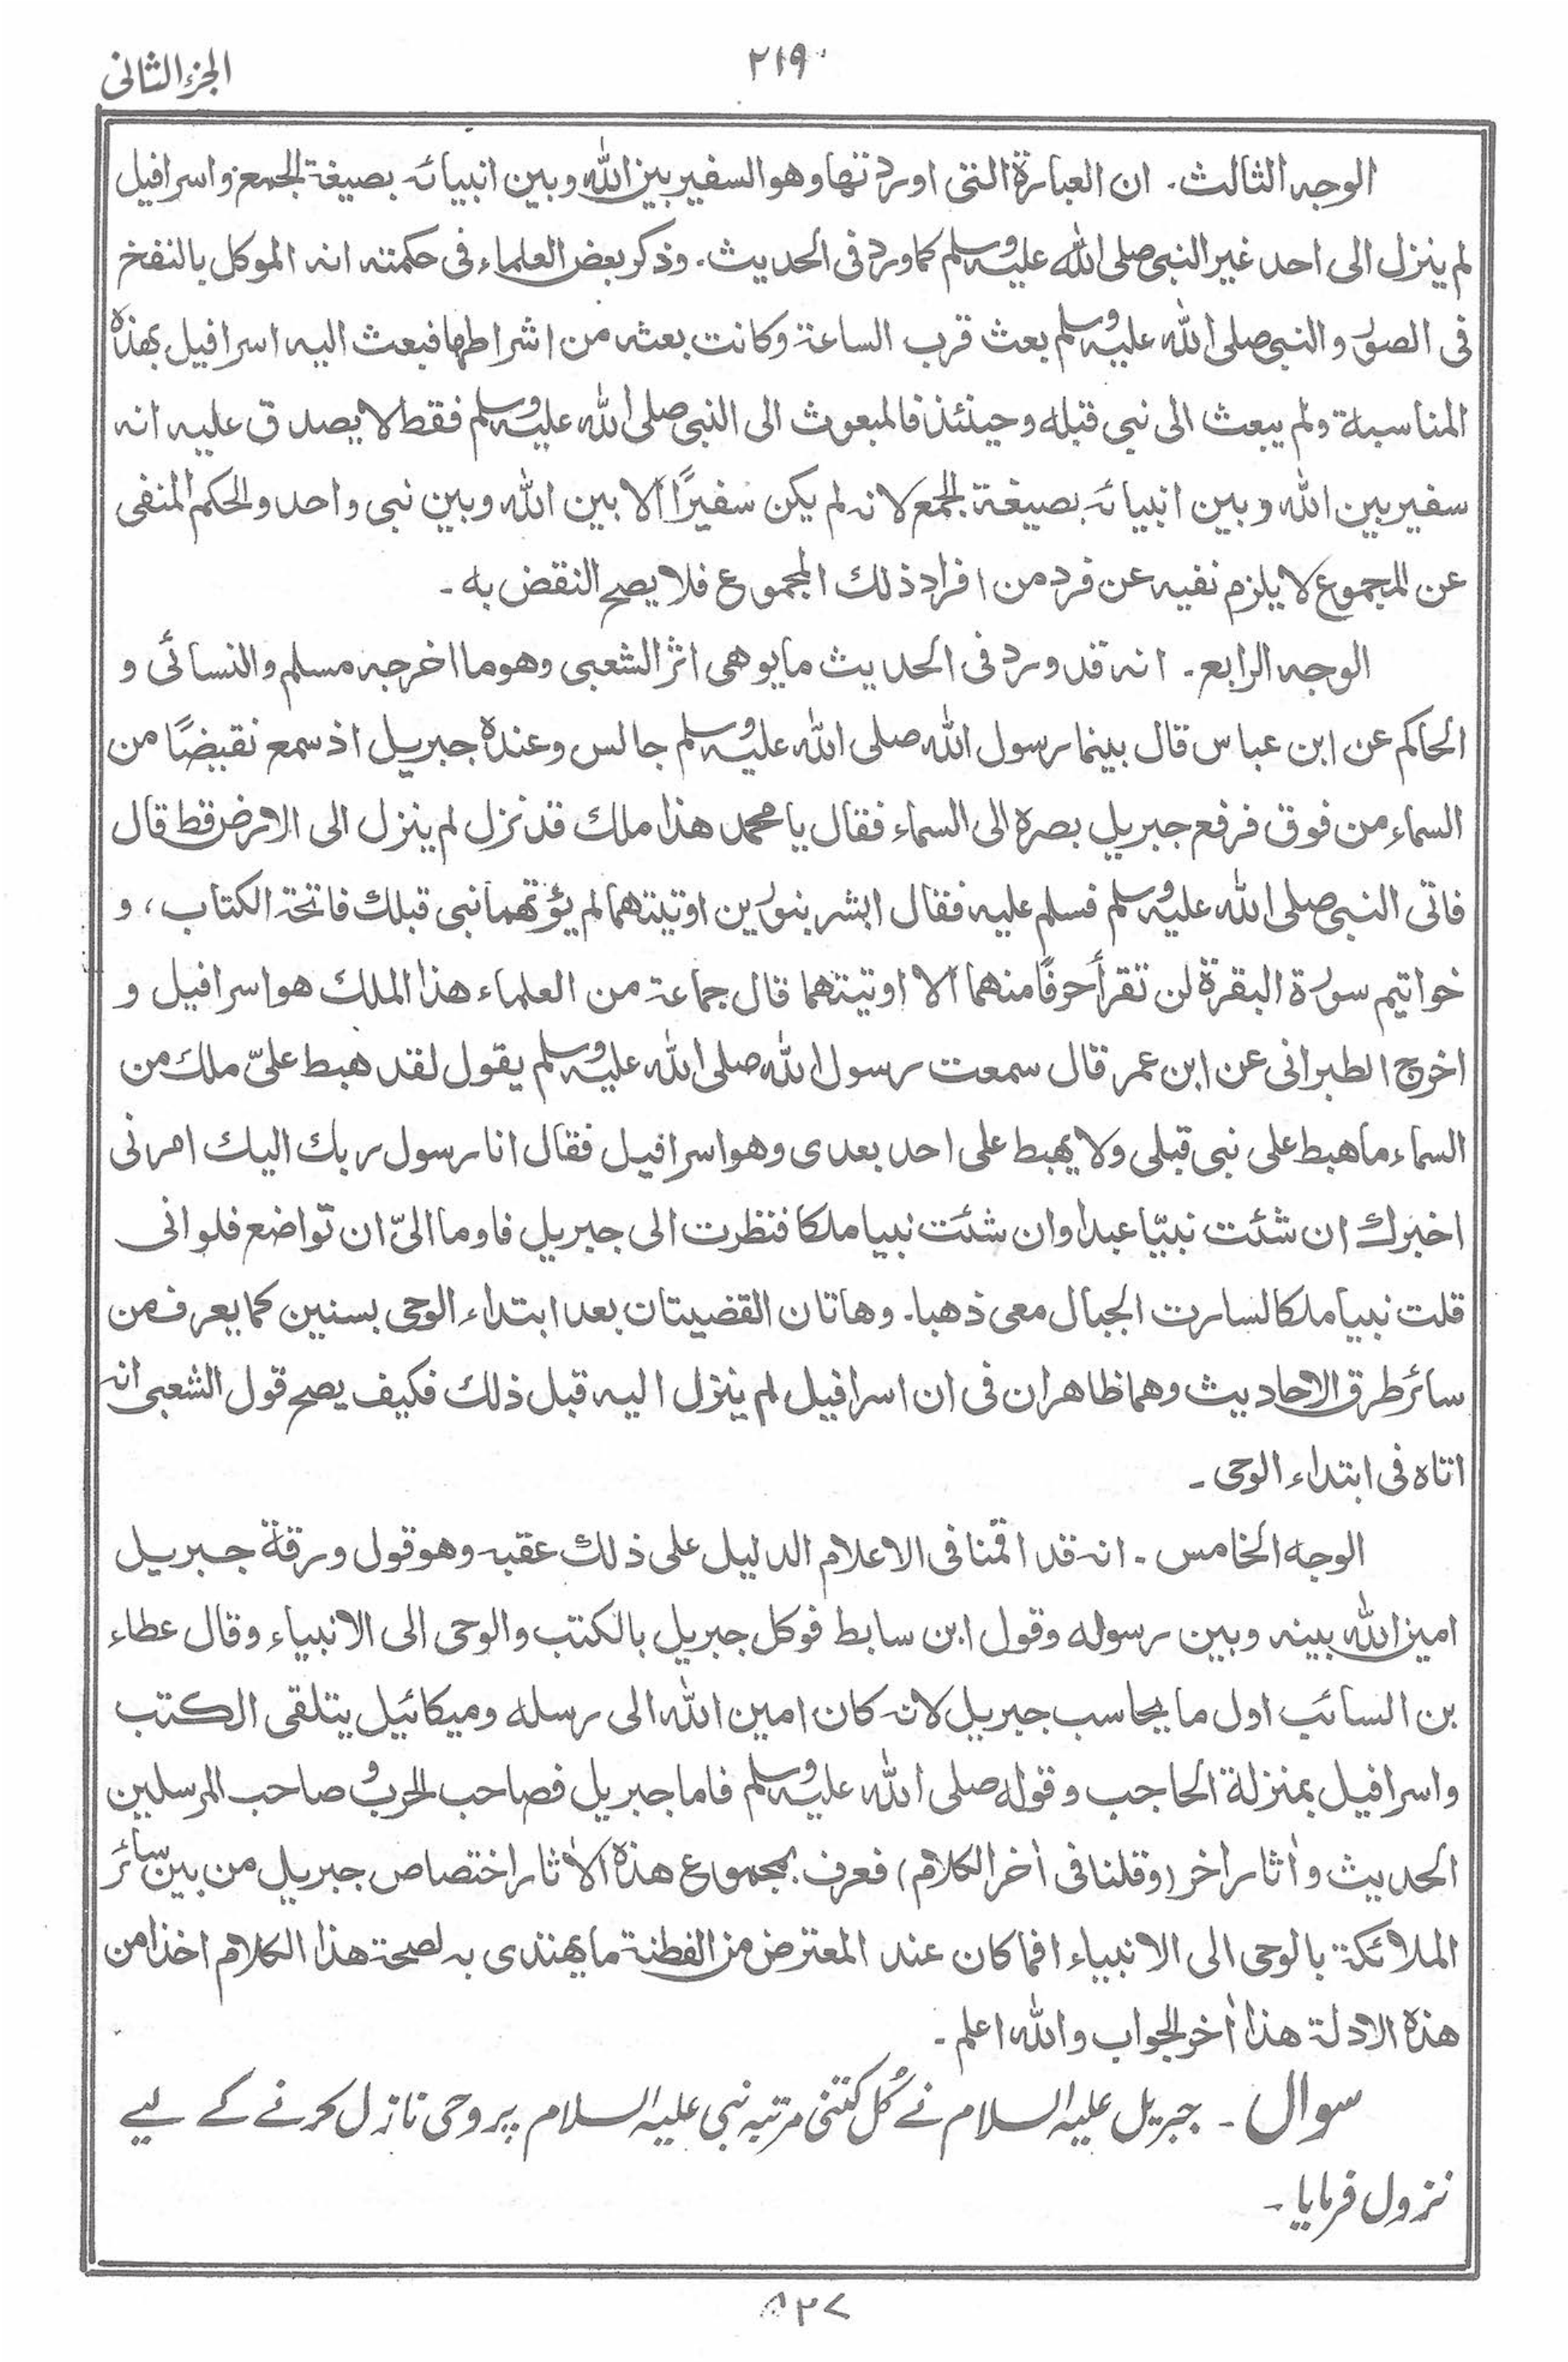 الجزء الثانی
۲۱۹
الوجه الثالث۔ ان العبارة التی اوردتها وهو السفیر بین الله وبین انبیائه بصیغة الجمع و اسرافیل
لم ینزل الی احد غیر النبی صلی الله علیه وسلم کما ورد فی الحدیث۔ وذکر بعض العلماء فی حکمته انه الموکل بالنفخ
فی الصور والنبی صلی الله علیه وسلم بعث قرب الساعة وکانت بعثه من اشراطها فبعث الیه اسرافیل بهذه
المناسبة ولم یبعث الی نبی قبله وحینئذ فالمبعوث الی النبی صلی الله علیه وسلم فقط لا یصدق علیه انه
سفیر بین الله وبین انبیائه بصیغة الجمع لانه لم یکن سفیرًا الا بین الله وبین نبی واحد والحکم المنفی
عن المجموع لا یلزم نفیه عن فرد من افراد ذلک المجموع فلا یصح النقض به۔
الوجه الرابع۔ انه قد ورد فی الحدیث ما یوهی اثر الشعبی وهو ما اخرجه مسلم والنسائی و
الحاکم عن ابن عباس قال بینما رسول الله صلی الله علیه وسلم جالس وعنده جبریل اذ سمع نقیضًا من
السماء من فوق فرفع جبریل بصره الی السماء فقال یا محمد هذا ملك قد نزل لم ینزل الی الارض قط قال
فاتی النبی صلی الله علیه وسلم فسلم علیه فقال ابشر بنورین اوتیتهما لم یؤتهما نبی قبلك فاتحة الکتاب، و
خواتیم سورة البقرة لن تقرأ حرفًا منهما الا اوتیتهما قال جماعة من العلماء هذا الملك هو اسرافیل و
اخرج الطبرانی عن ابن عمر قال سمعت رسول الله صلی الله علیه وسلم یقول لقد هبط علیّ ملك من
السماء ما هبط علی نبی قبلی ولا یهبط علی احد بعدی وهو اسرافیل فقال انا رسول ربك الیك امرنی
اخبرك ان شئت نبیّا عبدا وان شئت نبیا ملکا فنظرت الی جبریل فاوما الیّ ان تواضع فلو انی
قلت نبیا ملکا لسارت الجبال معی ذهبا۔ وهاتان القضیتان بعد ابتداء الوحی بسنین کما یعرف من
سائر طرق الاحادیث وهما ظاهران فی ان اسرافیل لم ینزل الیه قبل ذلك فکیف یصح قول الشعبی انه
اتاه فی ابتداء الوحی۔
الوجه الخامس۔ انه قد اقمنا فی الاعلام الدلیل علی ذلك عقبه وهو قول ورقة جبریل
امین الله بینه وبین رسوله وقول ابن سابط فوکل جبریل بالکتب والوحی الی الانبیاء وقال عطاء
بن السائب اول ما یحاسب جبریل لانه کان امین الله الی رسله ومیکائیل یتلقی الکتب
واسرافیل بمنزلة الحاجب وقوله صلی الله علیه وسلم فاما جبریل فصاحب الحرب وصاحب المرسلین
الحدیث وأثار اخر (وقلنا فی أخر الکلام) فعرف بمجموع هذه الأثار اختصاص جبریل من بین سائر
الملائکة بالوحی الی الانبیاء افما کان عند المعترض من الفطنة ما یهتدی به لصحة هذا الکلام اخذا من
هذه الادلة هذا أخر الجواب والله اعلم۔
سوال۔ جبریل علیہ السلام نے کُل کتنی مرتبہ نبی علیہ السلام پر وحی نازل کرنے کے لیے
نزول فرمایا۔
۸۲۷